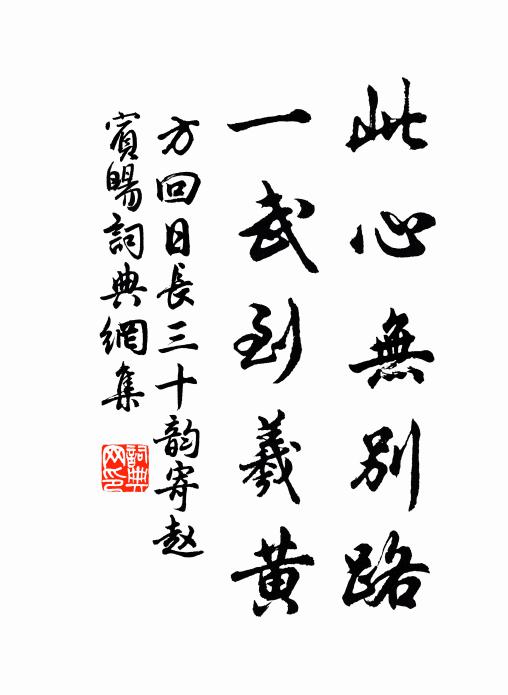 此心無別路
一武到羲黃
方回日長三十韵寄赵
賓暘詞典網集
詞典
网印